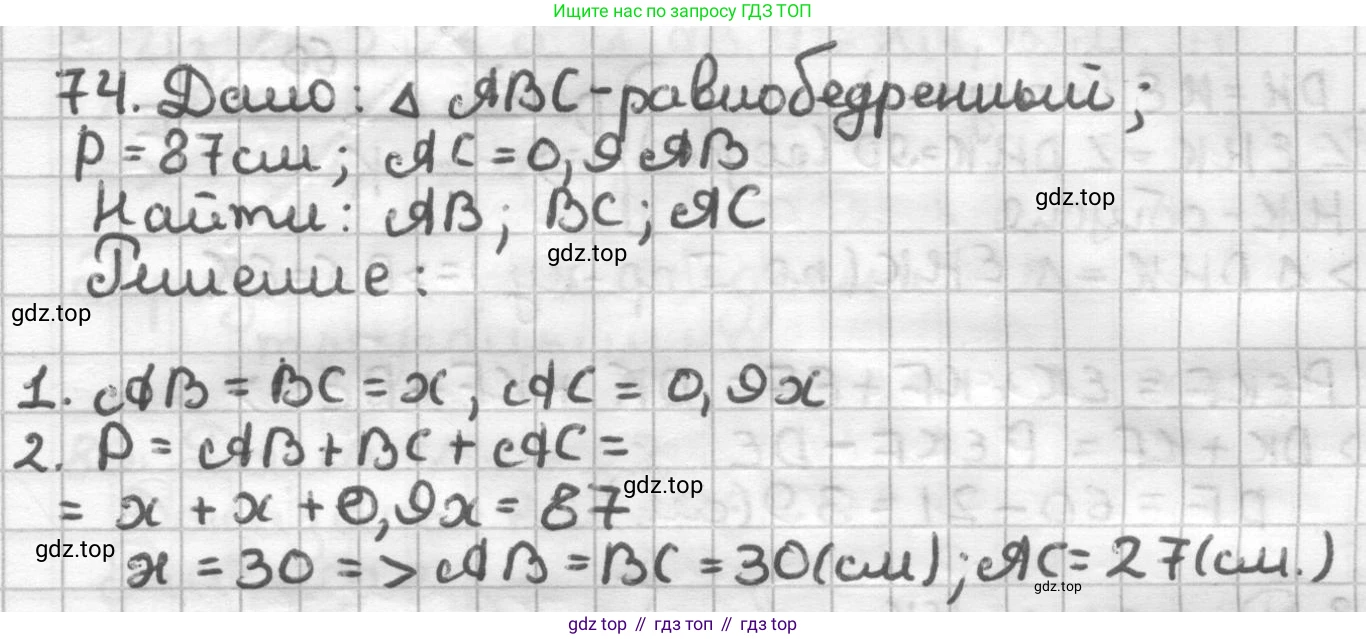 Ищите нас по запросу ГДЗ ТОП
74. Дано: △ ABC-равнобедренный;
P = 87см; AC = 0,9 AB
Найти: AB; BC; AC
gdz.top
gdz.top
Решение:
gdz.top
1. AB = BC = x, AC = 0,9x
2. P = AB + BC + AC =
gdz.top
= x + x + 0,9x = 87
gdz.top
x = 30 => AB = BC = 30(см); AC = 27(см.)
gdz.top
gdz top // гдз топ // гдз top